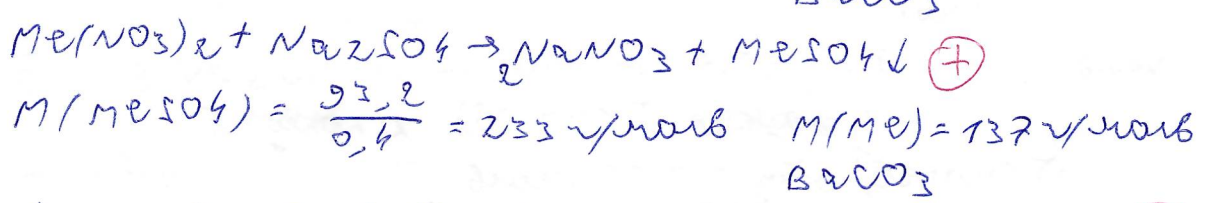 Me(NO3)2 + Na2SO4 → 2NaNO3 + MeSO4↓ +
M(MeSO4) = 93,2/0,4 = 233 г/моль M(Me) = 137 г/моль
BaCO3